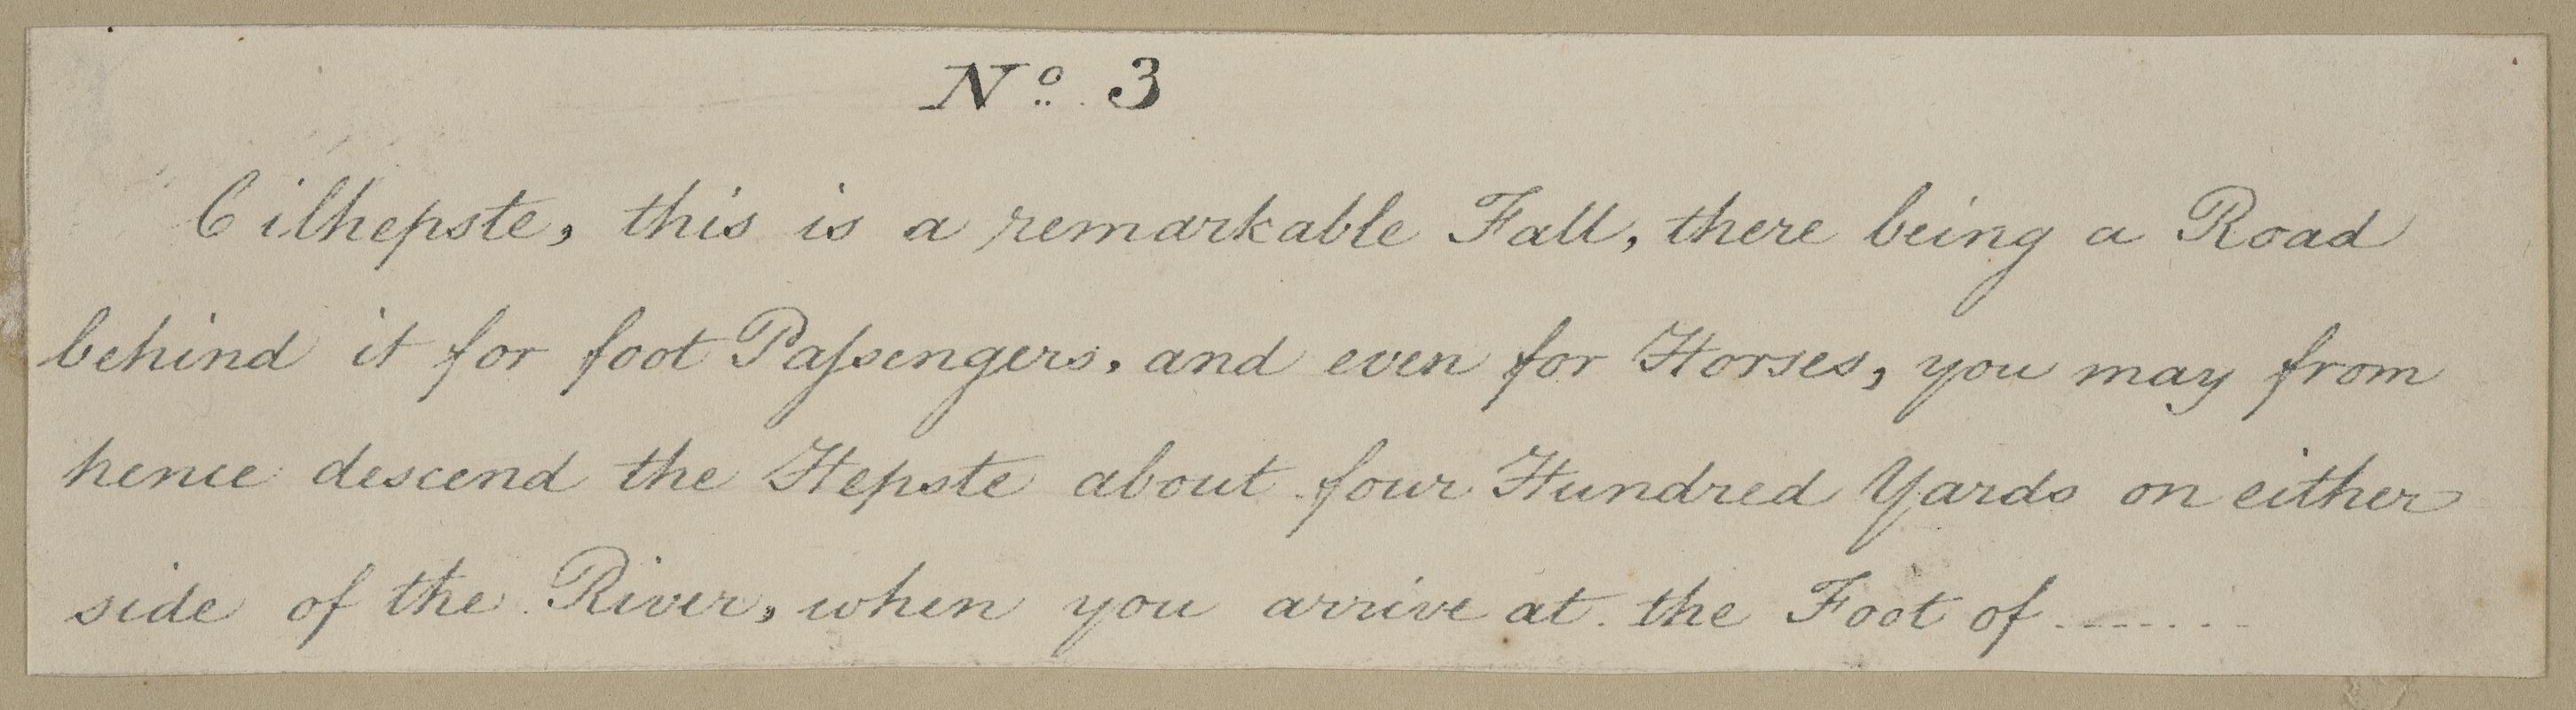 Nº. 3
Cilhepste, this is a remarkable Fall, there being a Road
behind it for foot Paſsengers, and even for Horses, you may from
hence descend the Hepste about four Hundred Yards on either
side of the River, when you arrive at the Foot of .......